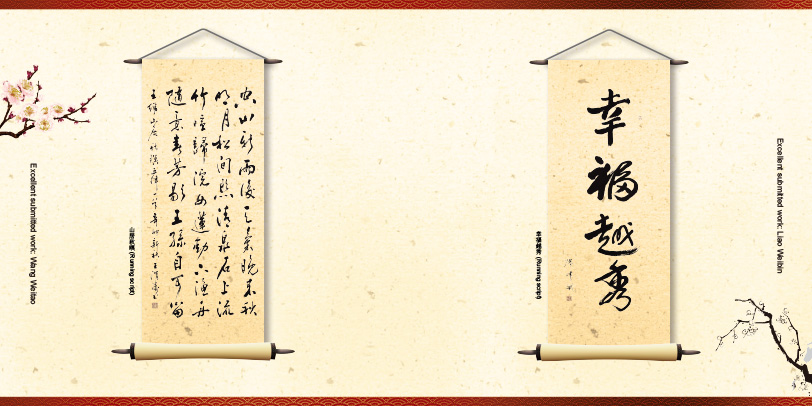 Excellent submitted work: Wang Weitao
山居秋暝 (Running script)
空山新雨後天氣晚來秋
明月松間照清泉石上流
竹喧歸浣女蓮動下漁舟
隨意春芳歇王孫自可留
王維山居秋暝
幸福越秀 (Running script)
幸福越秀
Excellent submitted work: Liao Weibin